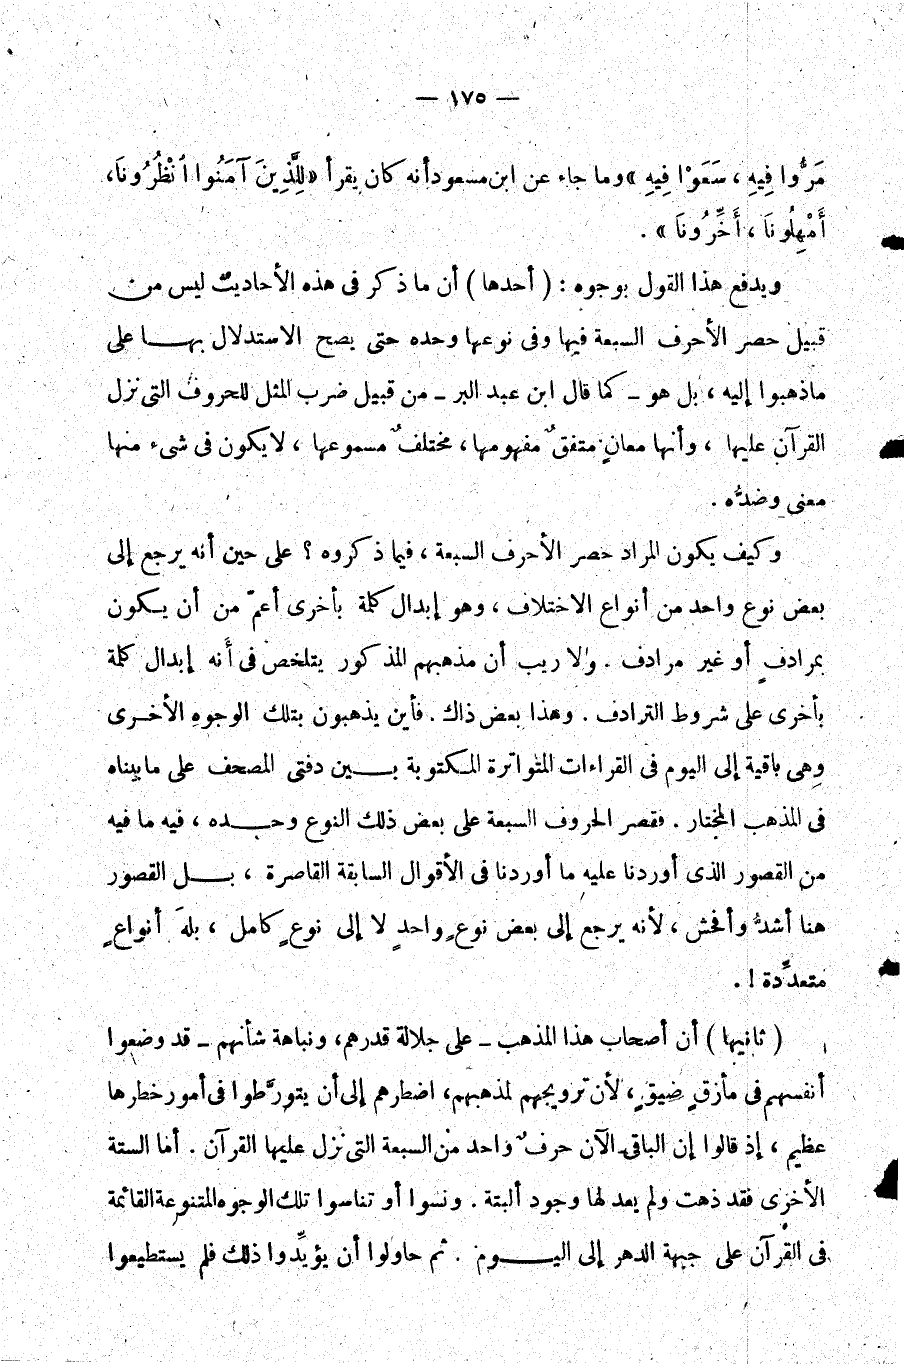 — ١٧٥ —
مَرُّوا فِيهِ ، سَعَوْا فِيهِ » وما جاء عن ابن مسعود أنه كان يقرأ « لِلَّذِينَ آمَنُوا أنْظُرُونَا،
أَمْهِلُونَا ، أَخِّرُونَا » .
ويدفع هذا القول بوجوه : ( أحدها ) أن ما ذكر فى هذه الأحاديث ليس من
قبيل حصر الأحرف السبعة فيها وفى نوعها وحده حتى يصح الاستدلال بهـا على
ماذهبوا إليه ، بل هو ـ كما قال ابن عبد البر ـ من قبيل ضرب المثل للحروف التى نزل
القرآن عليها ، وأنها معانٍ متفقٌ مفهومها، مختلفٌ مسموعها ، لايكون فى شىء منها
معنى وضدُّه .
وكيف يكون المراد حصر الأحرف السبعة ، فيما ذكروه ؟ على حين أنه يرجع إلى
بعض نوع واحد من أنواع الاختلاف ، وهو إبدال كلمة بأخرى أعمّ من أن يكون
بمرادفٍ أو غير مرادف . ولا ريب أن مذهبهم المذكور يتلخص فى أَنه إبدال كلمة
بأخرى على شروط الترادف . وهذا بعض ذاك . فأين يذهبون بتلك الوجوهِ الأخرى
وهى باقية إلى اليوم فى القراءات المتواترة المكتوبة بـين دفتى المصحف على مابيناه
فى المذهب المختار . فقصر الحروف السبعة على بعض ذلك النوع وحـده ، فيه ما فيه
من القصور الذى أوردنا عليه ما أوردنا فى الأقوال السابقة القاصرة ، بـل القصور
هنا أشدُّ وأفحش ، لأنه يرجع إلى بعض نوعٍ واحدٍ لا إلى نوعٍ كامل ، بلهَ أنواعٍ
متعدِّدة ! .
( ثانيها ) أن أصحاب هذا المذهب ـ على جلالة قدرهم، ونباهة شأنهم ـ قد وضعوا
أنفسهم فى مأزقٍ ضيقٍ ، لأن ترويجهم لمذهبهم، اضطرهم إلى أن يتورَّطوا فى أمور خطرها
عظيم ، إذ قالوا إن الباقى الآن حرفٌ واحد من السبعة التى نزل عليها القرآن . أما الستة
الأخرى فقد ذهبت ولم يعد لها وجود ألبتة . ونسوا أو تناسوا تلك الوجوه المتنوعة القائمة
فى القرآن على جبهة الدهر إلى اليـوم . ثم حاولوا أن يؤيِّدوا ذلك فلم يستطيعوا